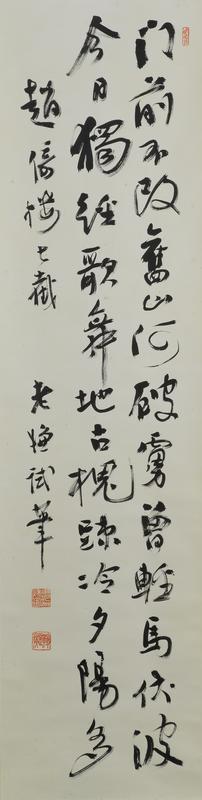 门前不改舊山河破虜曾輕馬伏波
今日獨經歌舞地古槐疎冷夕陽多
趙倚樓七截 老漁試筆